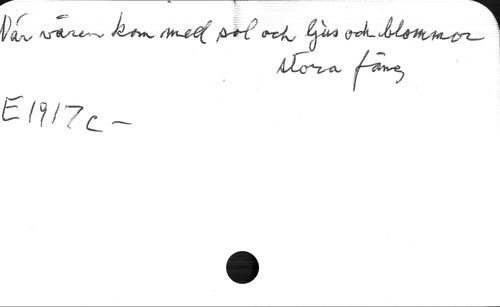 När våren kom med sol och ljus och blommor
stora fång
E 1917 c -